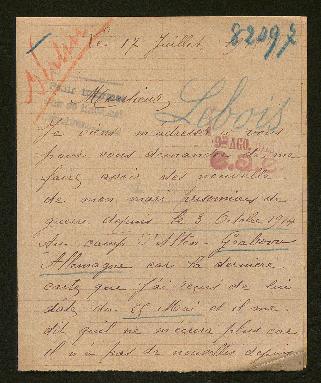 Le 17 Juillet,
82097
Monsieur,
Lebois
9 AGO.
Je viens m'adresser à vous
pour vous demander de me
faire avoir des nouvelle
de mon mari prisonnier de
guerre depuis le 3 Octobre 1914
au camp d'Alten-Grabow
Allemagne car la dernière
carte que j'ai reçus de lui
date du 25 Mai et il me
dit qu'il ne m'ecrira plus car
il n'a pas de nouvelles depuis